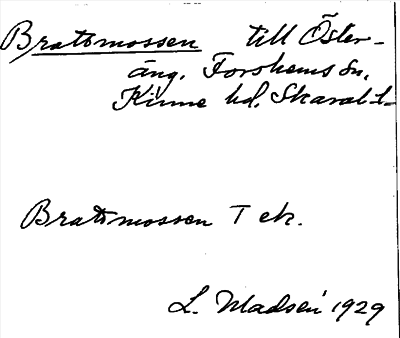 Bratsmossen till Öster-
äng. Forshems sn.
Kinne hd. Skarab. l.
Bratsmossen T ek.
L. Madsén 1929